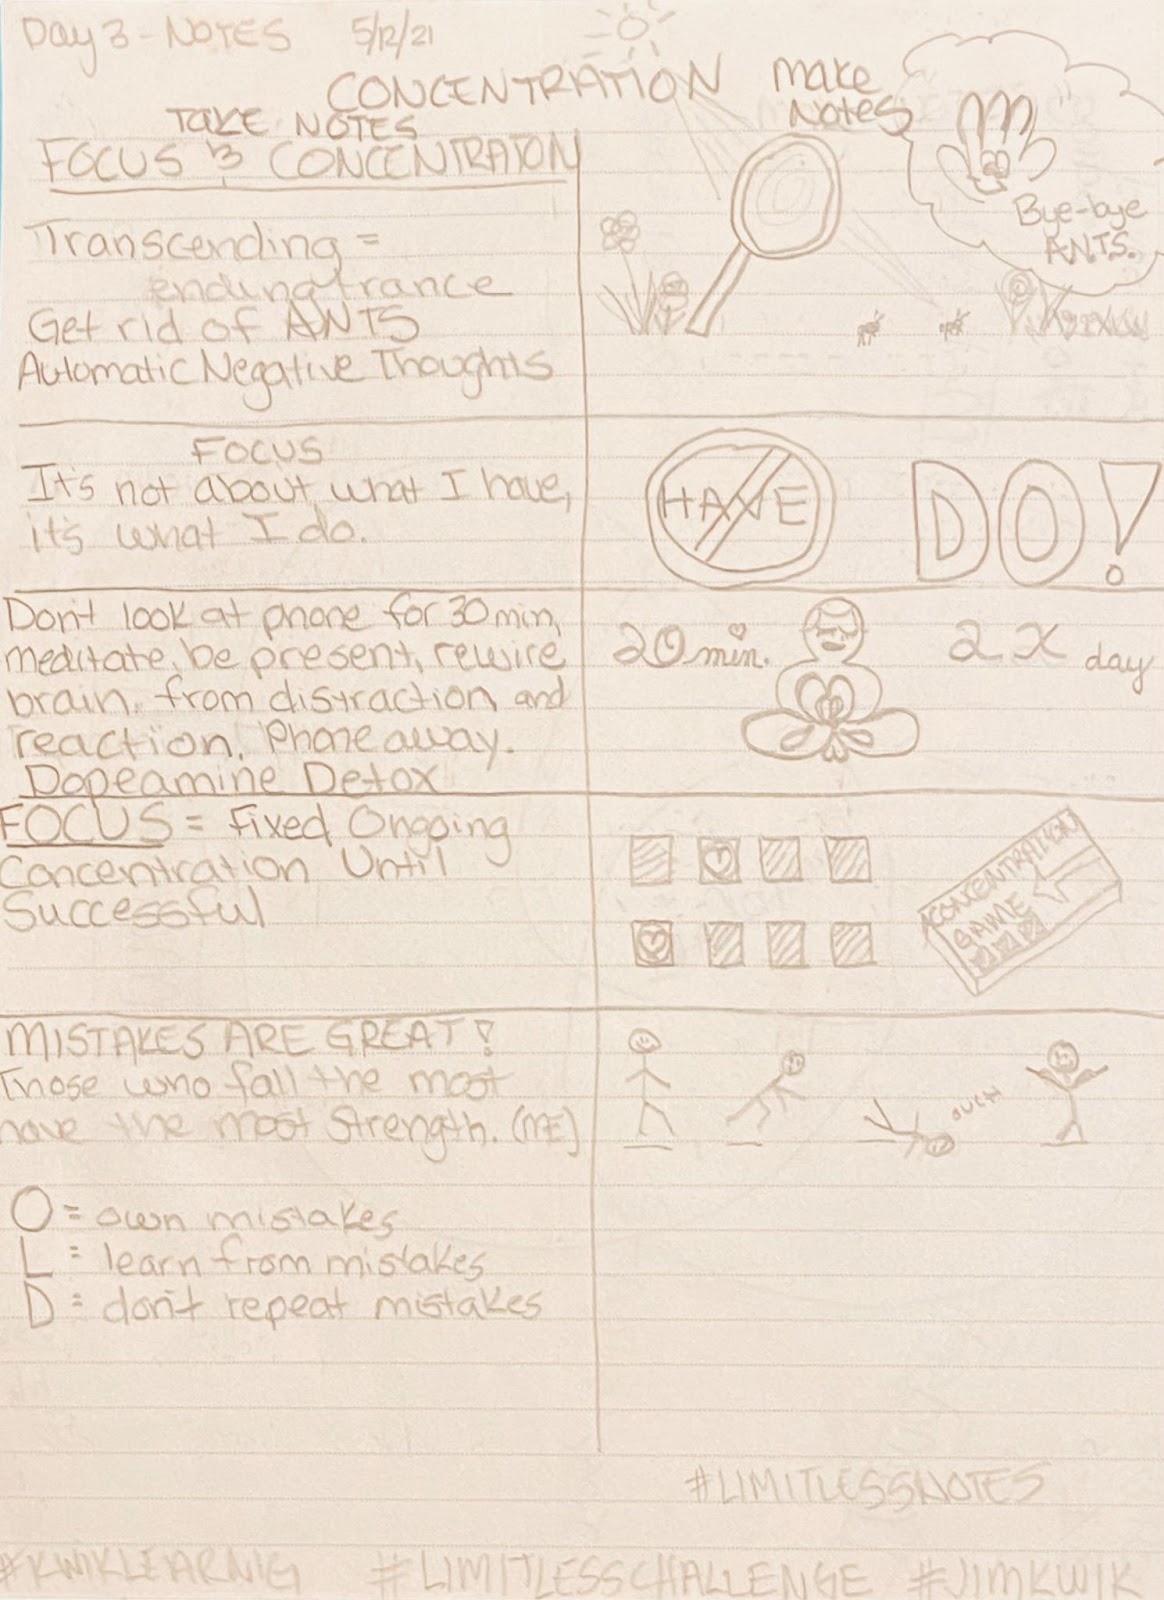 Day 3 - NOTES 5/12/21
CONCENTRATION
TAKE NOTES
make
Notes
FOCUS & CONCENTRATION
Transcending =
ending trance
Get rid of ANTS
Automatic Negative Thoughts
Bye-bye
A.N.T.S.
FOCUS
It's not about what I have,
it's what I do.
HAVE
DO!
Don't look at phone for 30 min,
meditate, be present, rewire
brain. from distraction and
reaction. Phone away.
Dopeamine Detox
20 min.
2 X day
FOCUS = Fixed Ongoing
Concentration Until
Successful
CONCENTRATION
GAME
MISTAKES ARE GREAT!
Those who fall the most
have the most strength. (ME)
OUCH
O = own mistakes
L = learn from mistakes
D = don't repeat mistakes
#LIMITLESSNOTES
#KWIKLEARNIG #LIMITLESSCHALLENGE #JIMKWIK